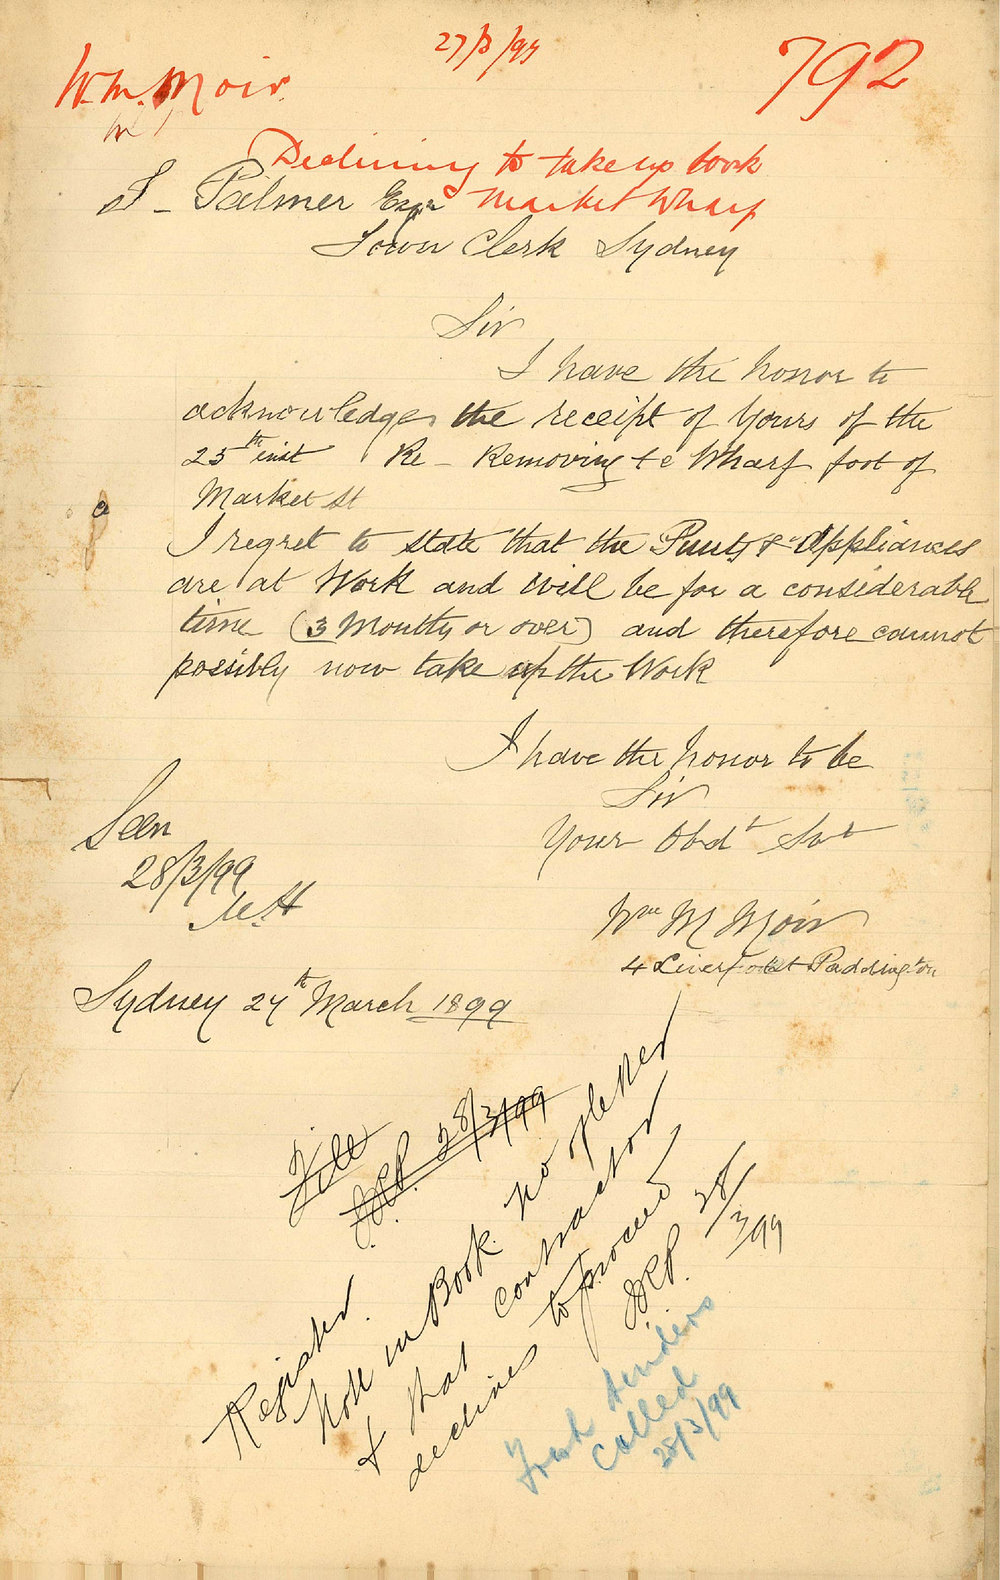 27/3/99
792
Wm. Moir.
Declining to take up work
Market Wharf
Palmer Esqr
Town Clerk Sydney
Sir
I have the honor to
acknowledge the receipt of yours of the
25th inst Re - Removing te Wharf foot of
Market St
I regret to state that the Punts & Appliances
are at Work and will be for a considerable
time (3 Months or over) and therefore cannot
possibly now take up the Work
I have the honor to be
Sir
Your Obdt Svt
Wm M Moir
4 Liverpool St Paddington
Seen
28/3/99
Sydney 27th March 1899
File
28/3/99
Register.
Note in Book no of letter
& that contractor
declines to proceed
28/3/99
Fresh tenders
called
28/3/99